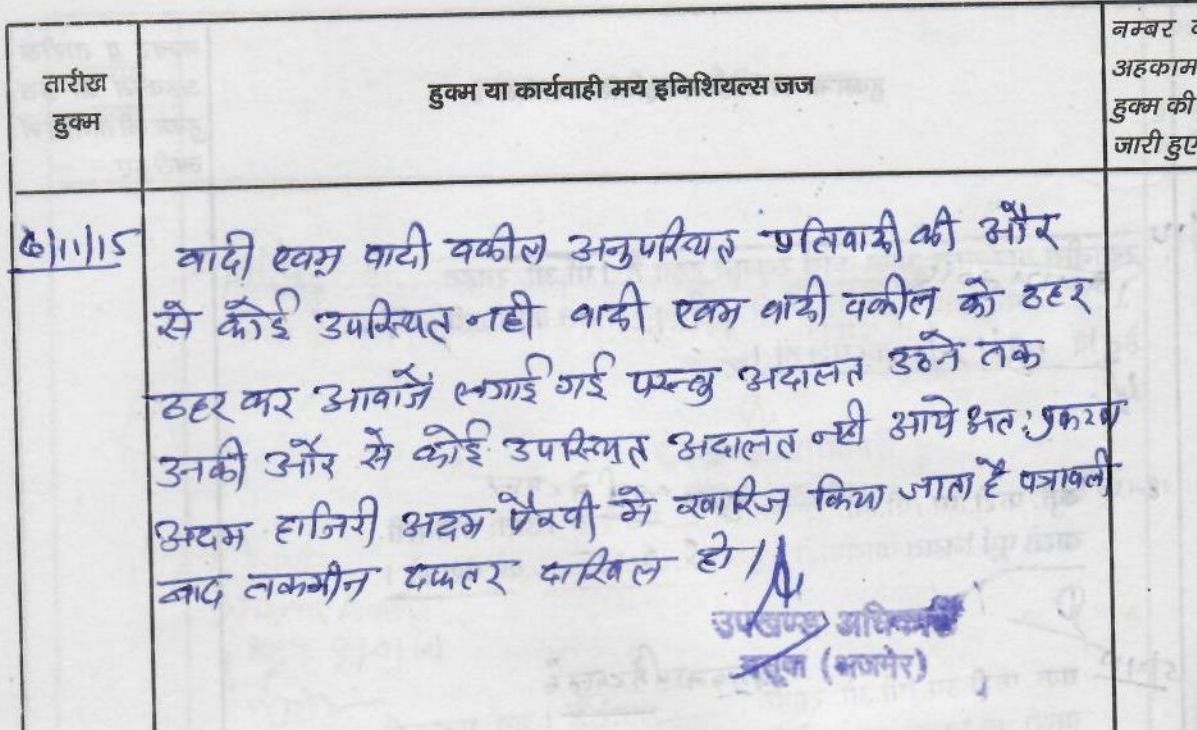 तारीख
हुक्म
हुक्म या कार्यवाही मय इनिशियल्स जज
नम्बर व
अहकाम
हुक्म की
जारी हुए
6/11/15
वादी एवम वादी वकील अनुपस्थित प्रतिवादी की और
से कोई उपस्थित नही वादी एवम वादी वकील को ठहर
ठहर कर आवाजें लगाई गई परन्तु अदालत उठने तक
उनकी और से कोई उपस्थित अदालत नही आये अत: प्रकरण
अदम हाजिरी अदम पैरवी में खारिज किया जाता है पत्रावली
बाद तकमीन दफ्तर दाखिल हो।
उपखण्ड अधिकारी
(अजमेर)